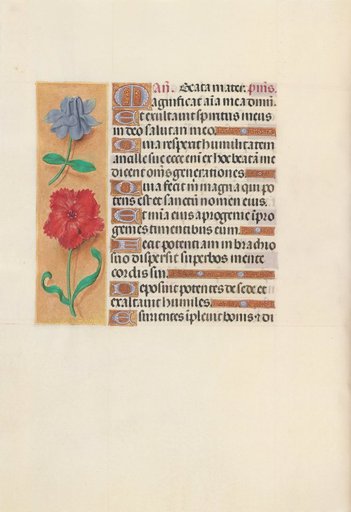 Añ. Beata mater. pm̃s.
Magnificat aīa mea dnm̃.
Et exultauit spiritus meus
in deo salutari meo.
Quia respexit humilitatem
ancille sue ecce eni᷒ ex hoc beatā me
dicent om̄s generationes.
Quia fecit m̄ magna qui po
tens est et sanctū nomen eius.
Et mīa eius a progenie ī pro
genies timentibus eum.
Fecit potentiam in brachio
suo dispersit superbos mente
cordis sui.
Deposuit potentes de sede et
exaltauit humiles.
Esurientes īpleuit bonis ⁊ di